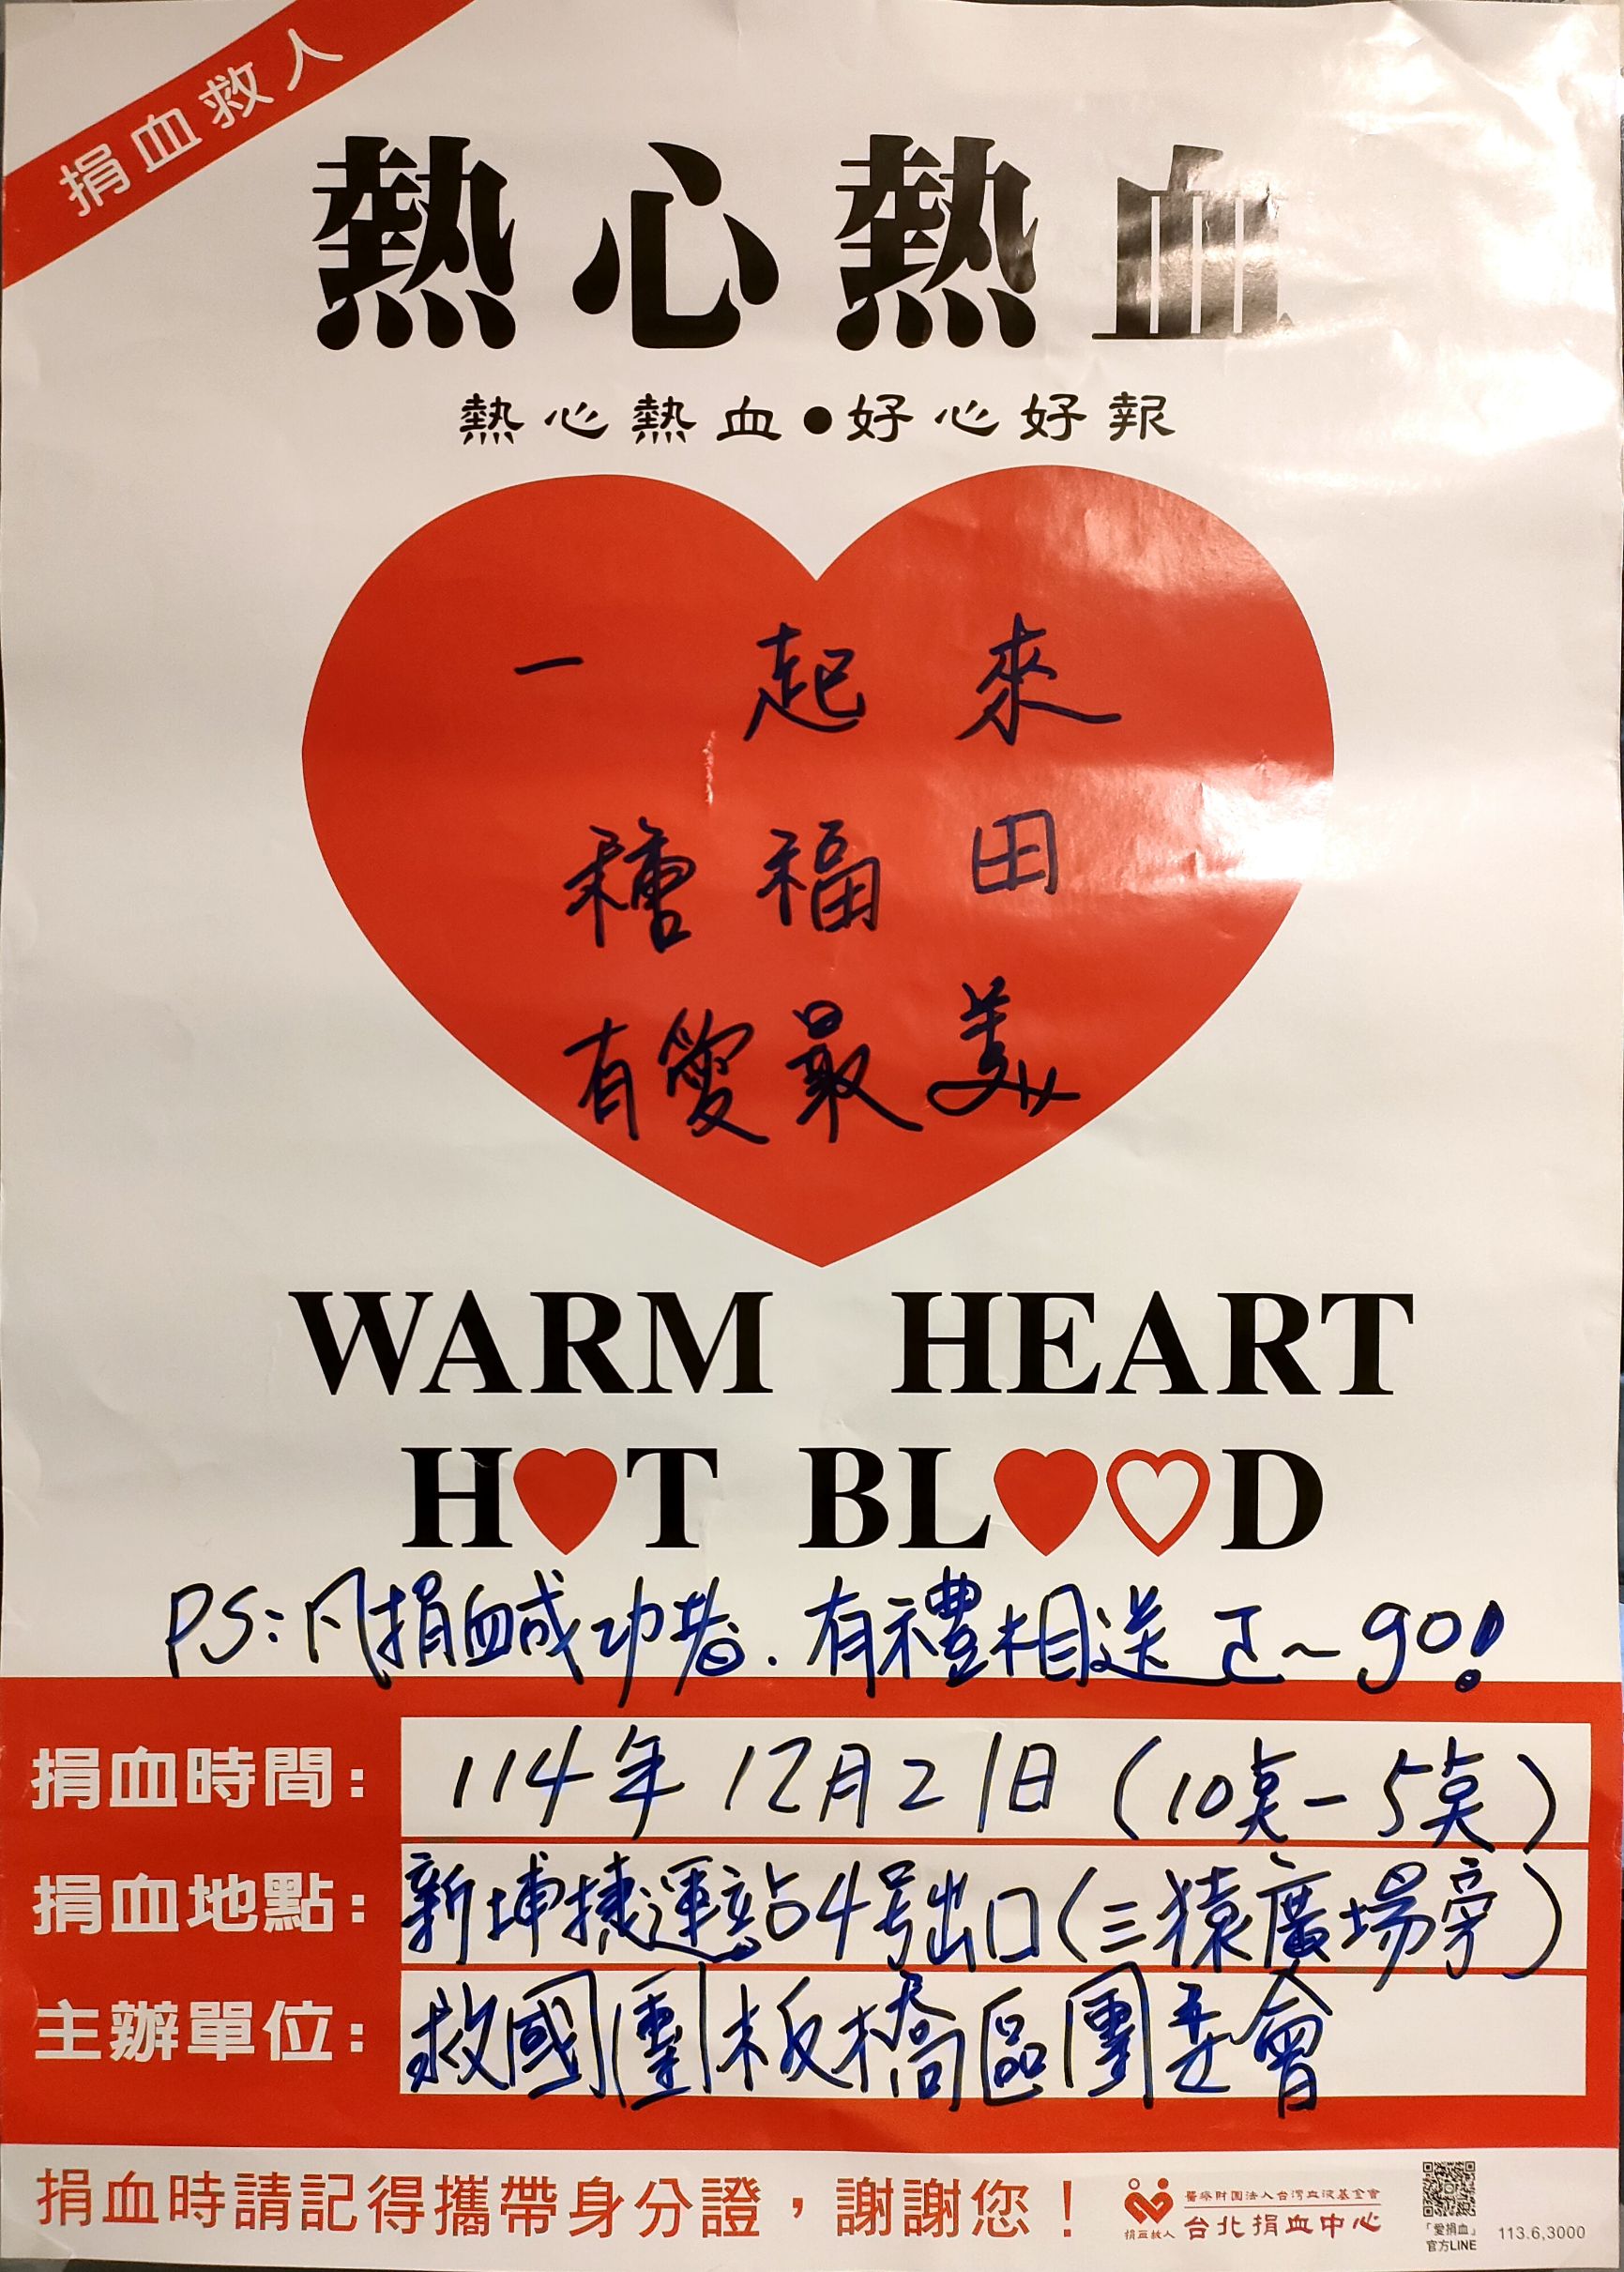 捐血救人
熱心熱血
熱心熱血●好心好報
一起來
種福田
有愛最美
WARM HEART
H♥T BL♥♡D
PS:凡捐血成功者.有禮相送 ㄛ~go!
捐血時間: 114年12月21日(10点-5点)
捐血地點: 新埔捷運站4號出口(三猿廣場旁)
主辦單位: 救國團板橋區團委會
捐血時請記得攜帶身分證,謝謝您!
捐血救人
醫療財團法人台灣血液基金會
台北捐血中心
「愛捐血」
官方LINE
113.6,3000